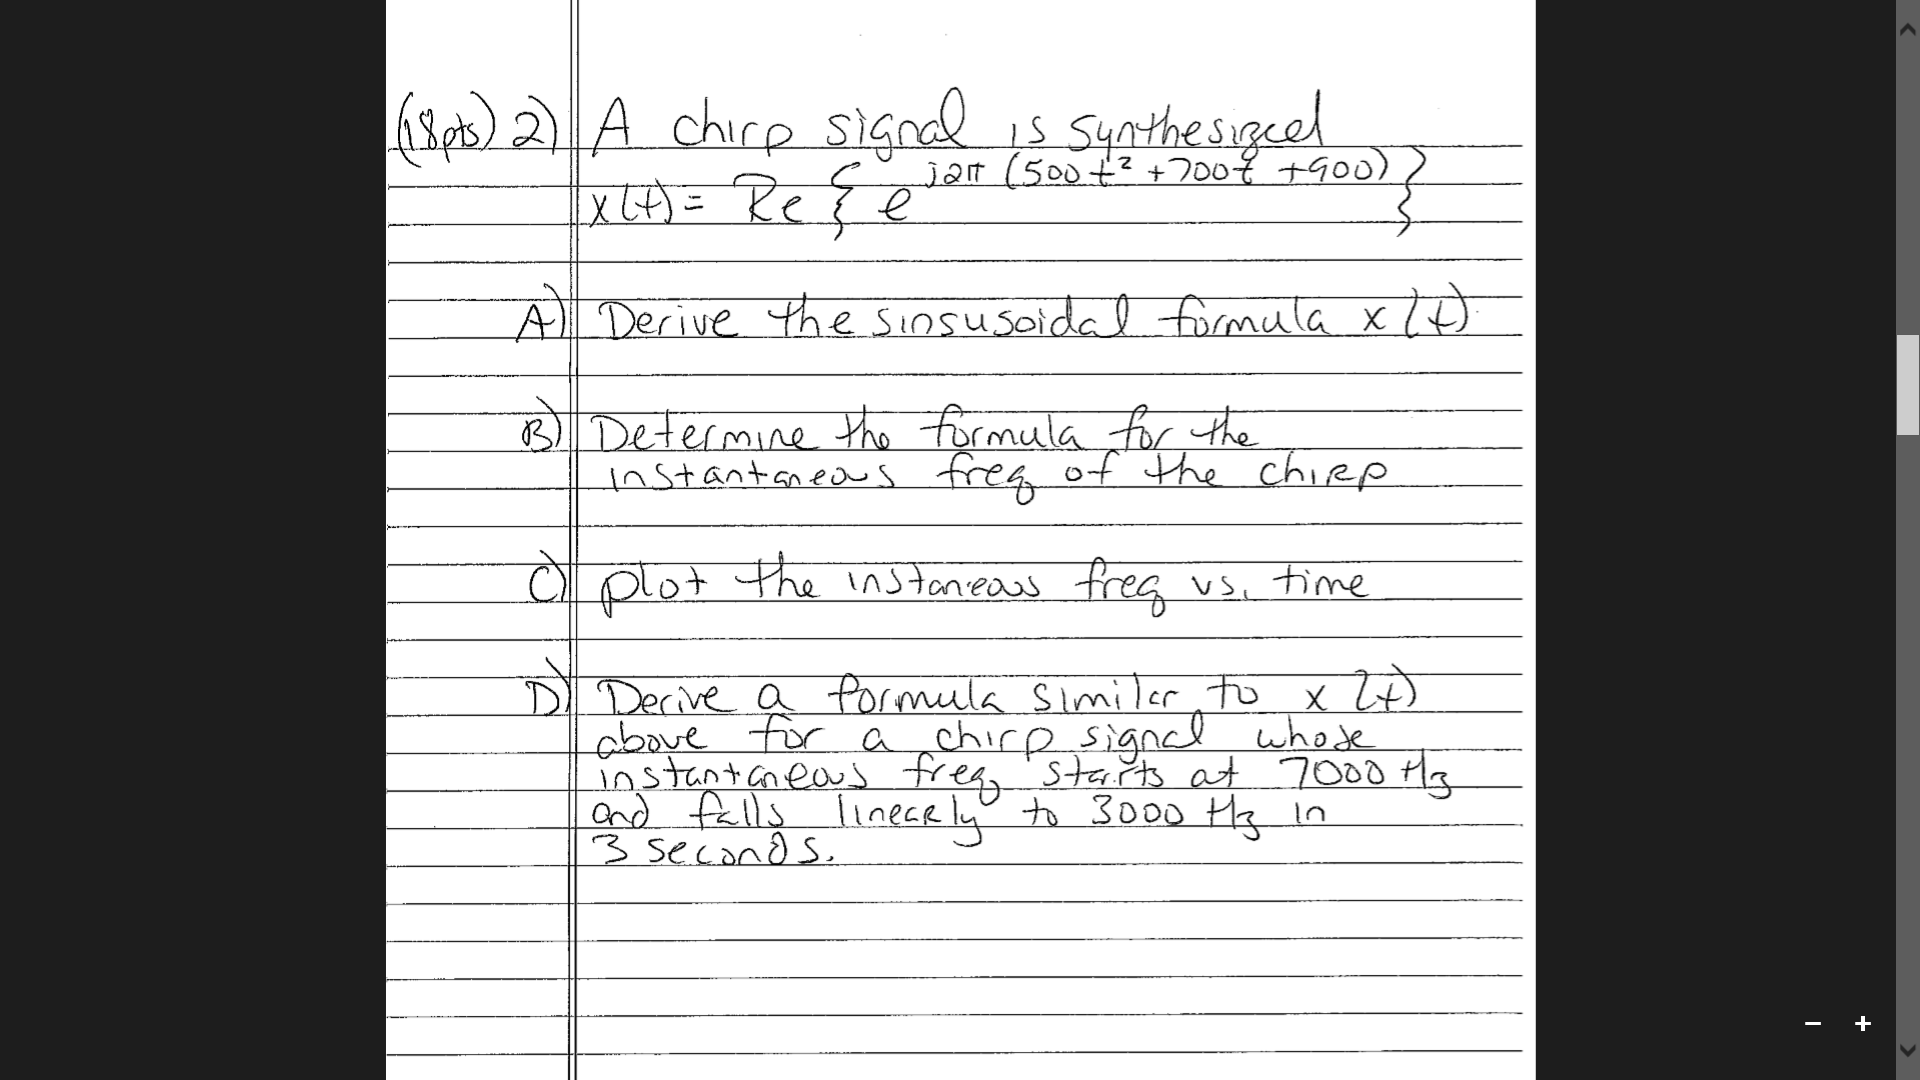 (18pts) 2) A chirp signal is synthesized
x(t) = Re { e^{j2π (500t² + 700t + 900)} }
A) Derive the sinsusoidal formula x(t)
B) Determine the formula for the
instantaneous freq of the chirp
C) plot the instaneous freq vs. time
D) Derive a formula similar to x(t)
above for a chirp signal whose
instantaneous freq starts at 7000 Hz
and falls linearly to 3000 Hz in
3 seconds.